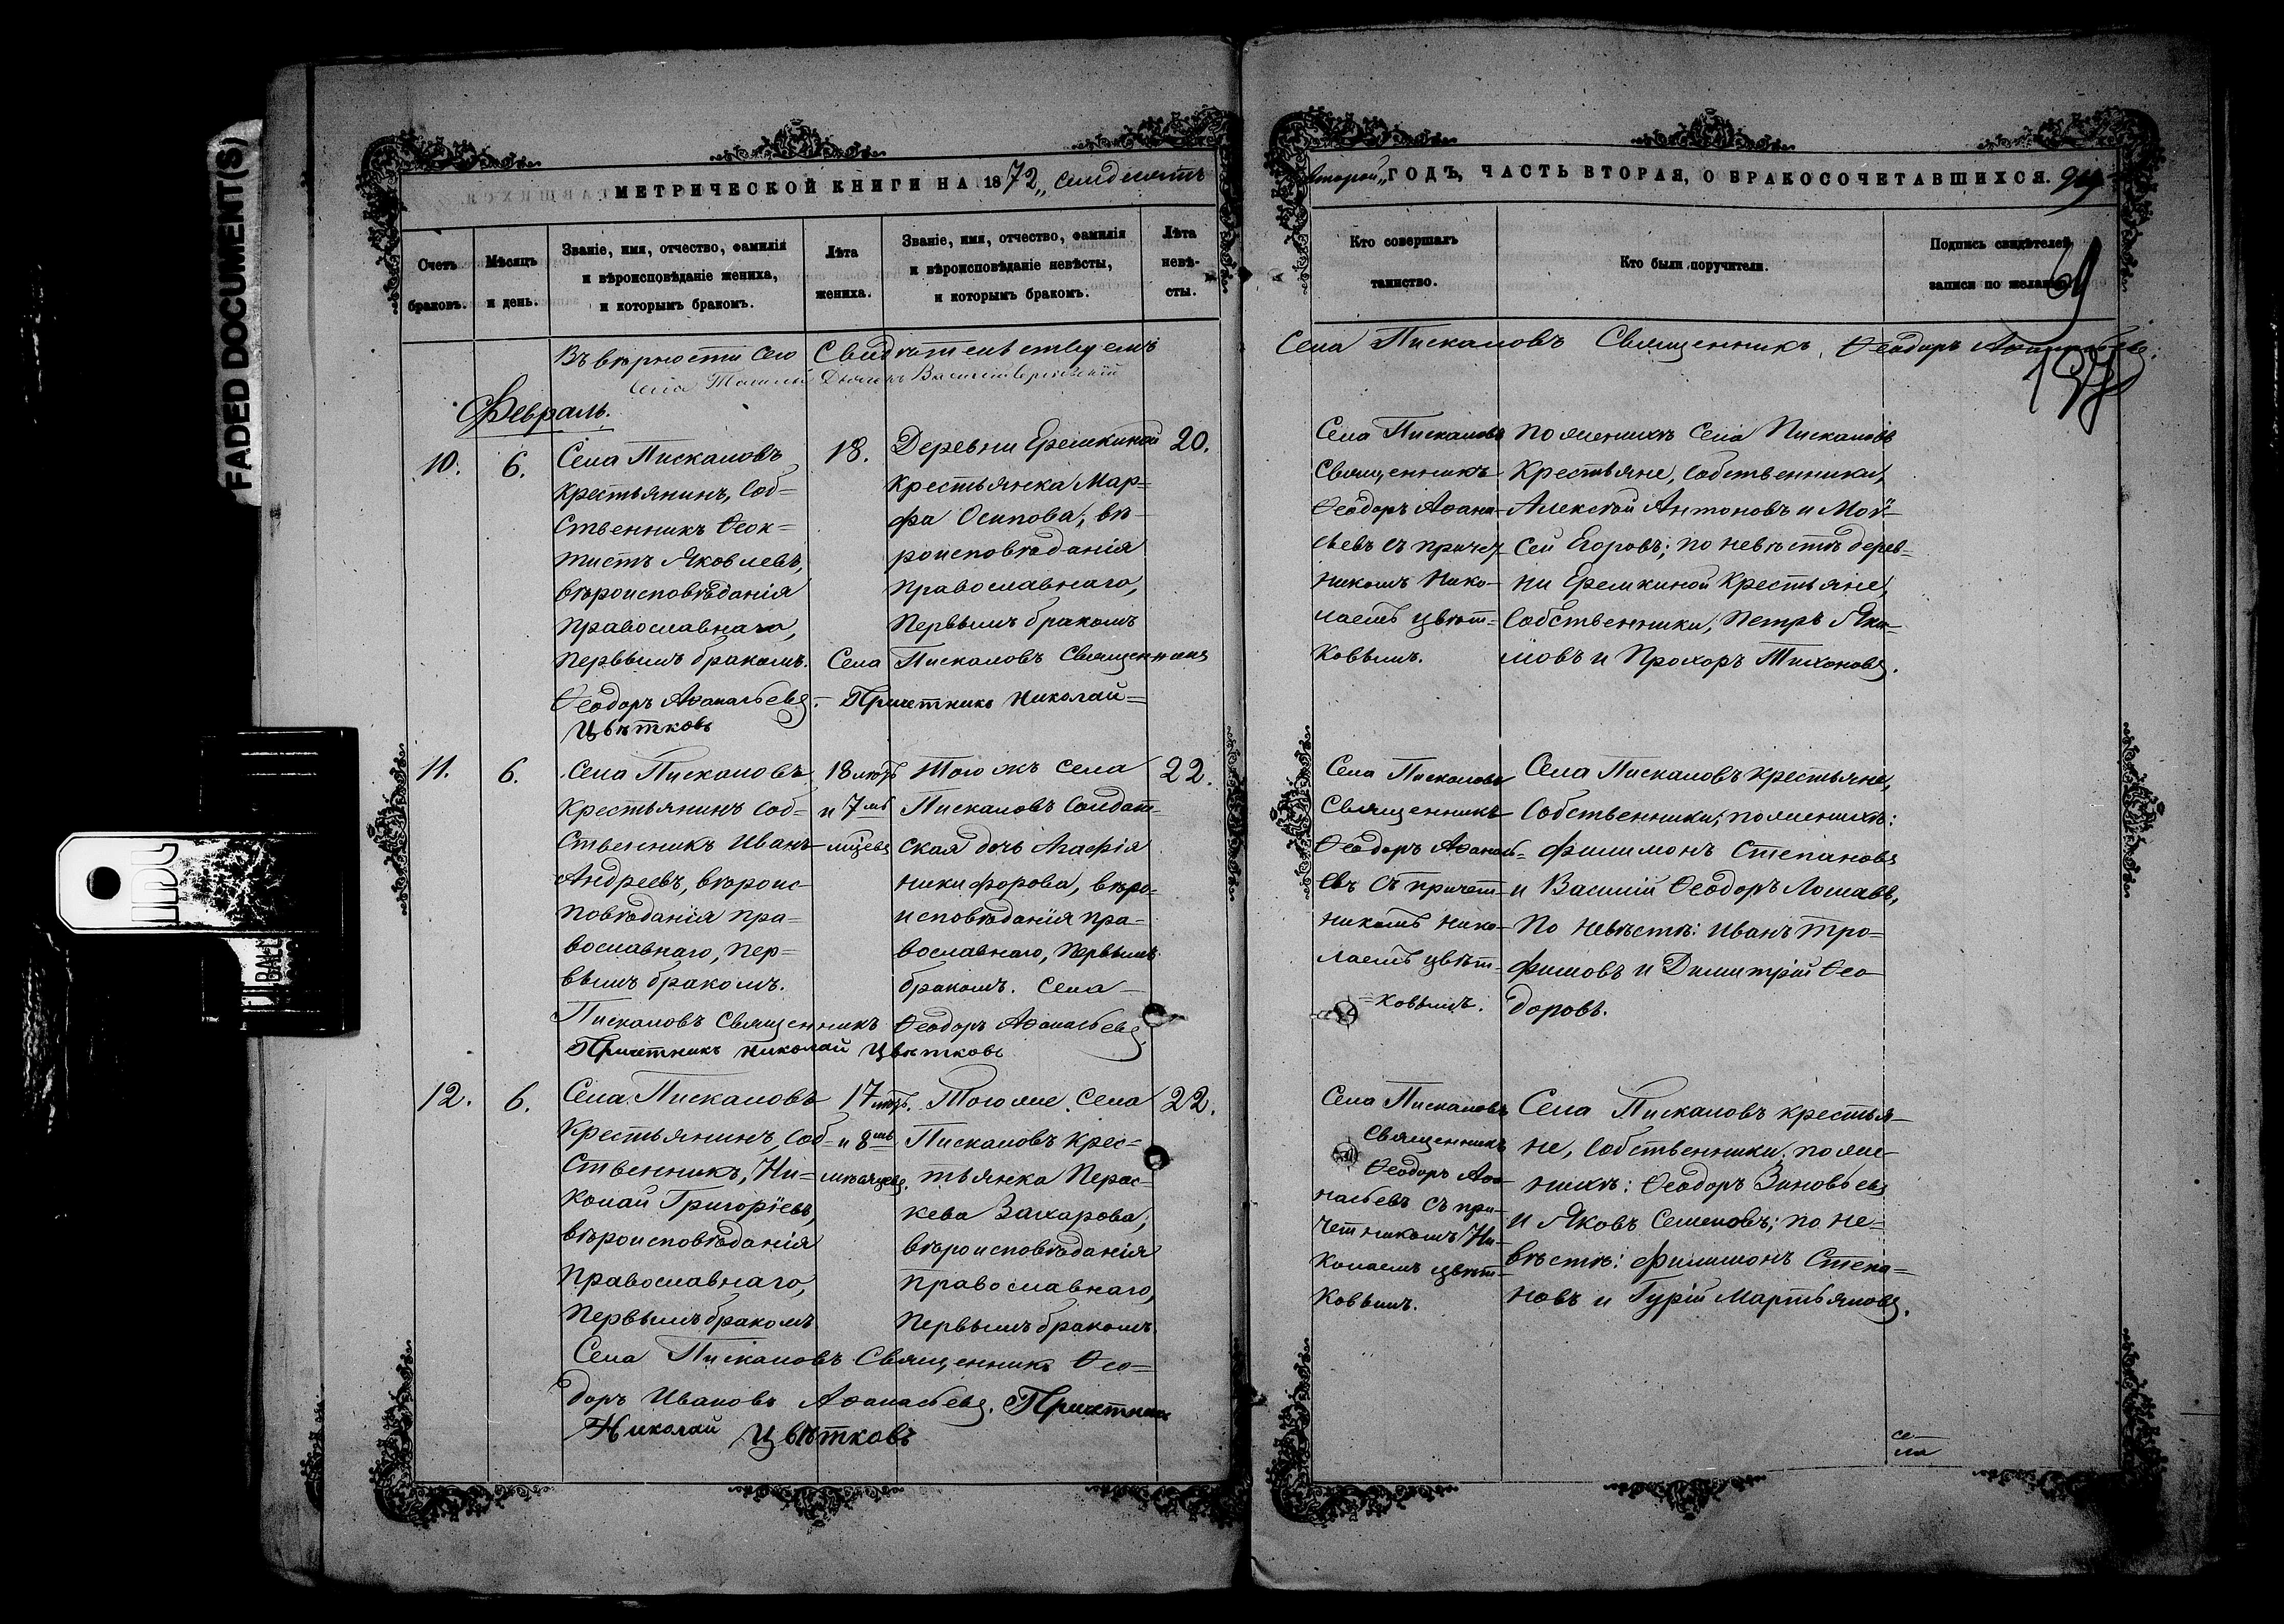 FADED DOCUMENT(S)
МЕТРИЧЕСКОЙ КНИГИ НА 1872„ семдесятъ
второй„ ГОДЪ, ЧАСТЬ ВТОРАЯ, О БРАКОСОЧЕТАВШИХСЯ.
Счетъ браковъ.
Мѣсяцъ и день.
Званіе, имя, отчество, фамилія
и вѣроисповѣданіе жениха,
и которымъ бракомъ.
Лѣта
жениха.
Званіе, имя, отчество, фамилія
и вѣроисповѣданіе невѣсты,
и которымъ бракомъ.
Лѣта
невѣ-
сты.
Кто совершалъ
таинство.
Кто были поручители.
Подпись свидѣтелей
записи по желанію
69
Въ вѣрности сего Свидѣтельствуемъ
Села Пискаловъ Священникъ, Ѳеодоръ Аѳанасьевъ.
Февраль.
10.
6.
Села Пискаловъ
Крестьянинъ, Соб=
ственникъ Ѳеок=
тистъ Яковлевъ,
вѣроисповѣданія
Православнаго,
Первымъ бракомъ.
18.
Деревни Еремкиной
Крестьянка Мар=
фа Осипова, вѣ-
роисповѣданія
Православнаго,
Первымъ бракомъ
20.
Села Пискаловъ Священникъ
Ѳеодоръ Аѳанасьевъ. Причетникъ Николай=
Цвѣтковъ
Села Пискаловъ
Священникъ
Ѳеодоръ Аѳана-
сьевъ съ причет
никомъ Нико-
лаемъ Цвѣт=
ковымъ.
По женихѣ Села Пискаловъ
Крестьяне, Собственники,
Алексѣй Антоновъ и Мой-
сей Егоровъ; по невѣстѣ дерев=
ни Еремкиной Крестьяне,
Собственники, Петръ Яки-
мовъ и Прохоръ Тихоновъ.
11.
6.
Села Пискаловъ
Крестьянинъ Соб=
ственникъ Иванъ
Андреевъ, вѣроис-
повѣданія пра=
вославнаго, пер=
вымъ бракомъ.
18 лѣтъ
и 7 мѣ
сяцевъ
Того жъ села
Пискаловъ Солдат-
ская дочь Агафія
Никифорова, вѣро-
исповѣданія пра=
вославнаго, первымъ
бракомъ. Села
22.
Пискаловъ Священникъ Ѳеодоръ Аѳанасьевъ
Причетникъ Николай Цвѣтковъ
Села Пискаловъ
Священникъ
Ѳеодоръ Аѳанась=
евъ съ причет-
никомъ Нико-
лаемъ Цвѣт-
=ковымъ.
Села Пискаловъ крестьяне,
Собственники, по женихѣ:
Филимонъ Степановъ
и Василій Ѳеодоръ
По невѣстѣ: Иванъ Тро=
фимовъ и Димитрій Ѳео
доровъ.
12.
6.
Села Пискаловъ
Крестьянинъ, Соб-
ственникъ, Ни=
колай Григоріевъ,
вѣроисповѣданія
Православнаго,
Первымъ бракомъ
17 лѣтъ.
и 8 мѣ
мѣсяцевъ.
Того же Села
Пискаловъ Крес-
тьянка Перас-
кева Захарова,
вѣроисповѣданія
православнаго,
Первымъ бракомъ.
22.
Села Пискаловъ Священникъ Ѳео=
доръ Ивановъ Аѳанасьевъ. Причетникъ
Николай Цвѣтковъ
Села Пискаловъ
Священникъ
Ѳеодоръ Аѳа-
насьевъ съ при-
четникомъ Ни-
колаемъ Цвѣт-
ковымъ.
Села Пискаловъ крестья-
не, Собственники, по же-
нихѣ: Ѳеодоръ Зиновьевъ
и Яковъ Семеновъ; по не=
вѣстѣ: Филимонъ Степа=
новъ и Гурій Мартьяновъ.
се-
ла